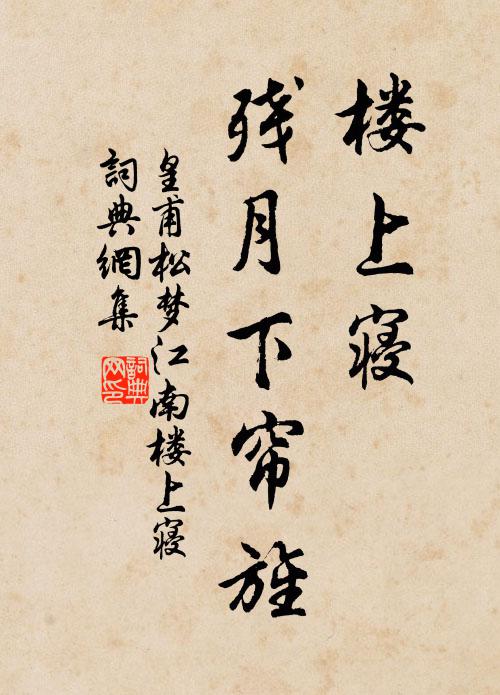 楼上寝
残月下帘旌
皇甫松梦江南楼上寝
詞典網集
詞典网印